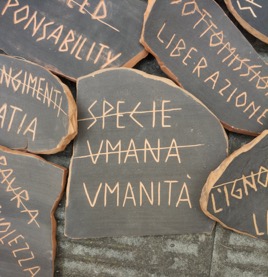 PONSABILITY
SOTTOMISSIO
LIBERAZIONE
NGIMENTI
ATIA
SPECIE
VMANA
VMANITÀ
PAVRA
NOLEZZA
LIGNO
LI